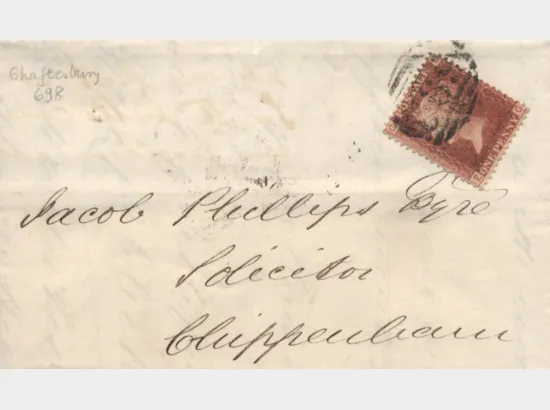 Shaftesbury
698
ONE PENNY
Jacob Phillips Esqre
Solicitor
Chippenham